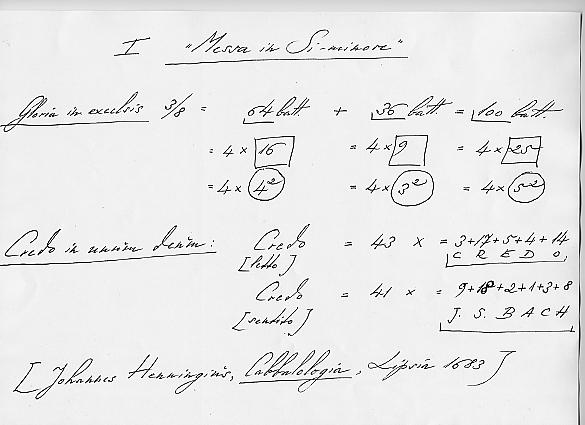 I "Messa in Si-minore"
Gloria in excelsis 3/8 = 64 batt. + 36 batt. = 100 batt.
= 4 × 16 = 4 × 9 = 4 × 25
= 4 × 4² = 4 × 3² = 4 × 5²
Credo in unum deum: Credo = 43 × = 3+17+5+4+14
[letto] C R E D O,
Credo = 41 × = 9+18+2+1+3+8
[sentito] J. S. B A C H
[Johannes Henningius, Cabbalologia, Lipsia 1683]